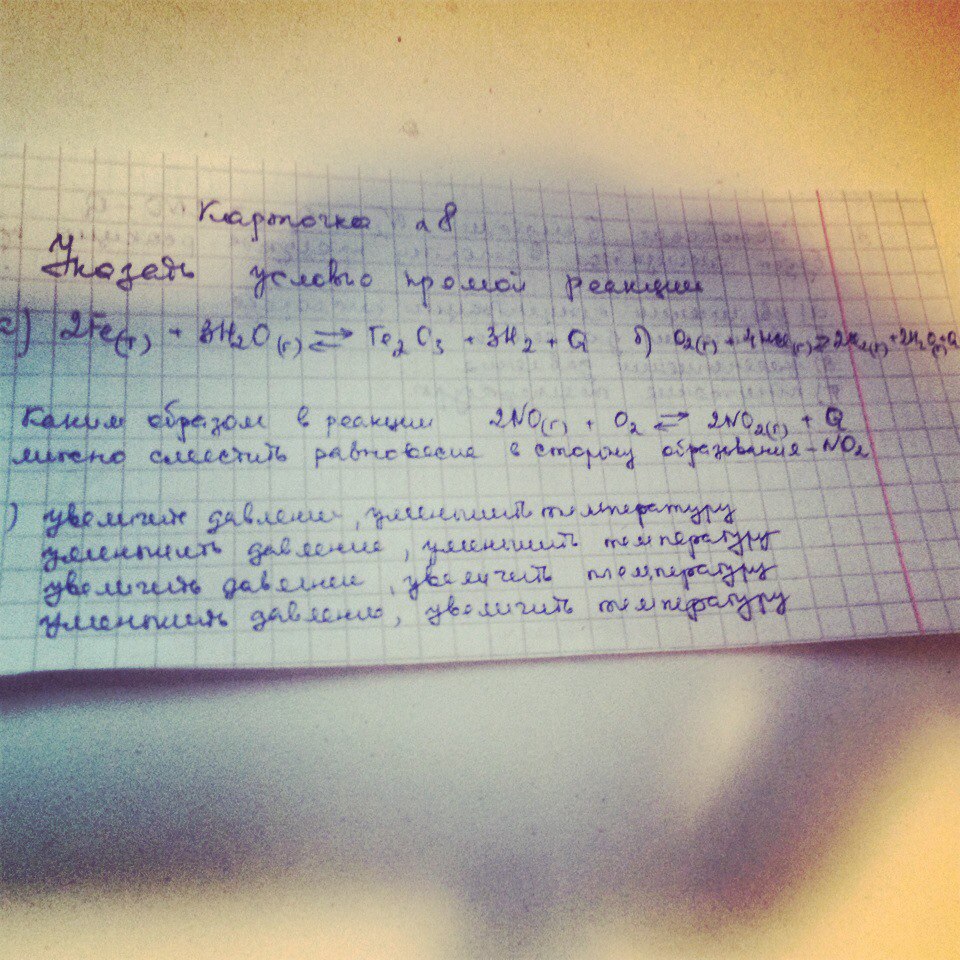 Карточка №8
Указать условью прямой реакции
а) 2Fe(т) + 3H₂O(г) ⇄ Fe₂O₃ + 3H₂ + Q б) O₂(г) + 4HCl(г) ⇄ 2Cl₂(г) + 2H₂O(г) + Q
Каким образом в реакции 2NO(г) + O₂ ⇄ 2NO₂(г) + Q
можно сместить равновесие в сторону образования - NO₂
) увеличить давление, уменьшить температуру
уменьшить давление, уменьшить температуру
увеличить давление, увеличить температуру
уменьшить давление, увеличить температуру